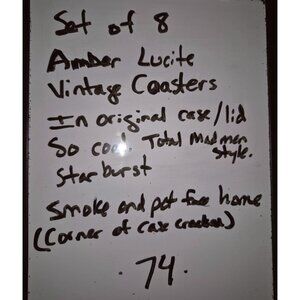 Set of 8
Amber Lucite
Vintage Coasters
In original case/lid
So cool. Total Madmen
style.
Starburst
Smoke and pet free home
(Corner of case cracked)
. 74.